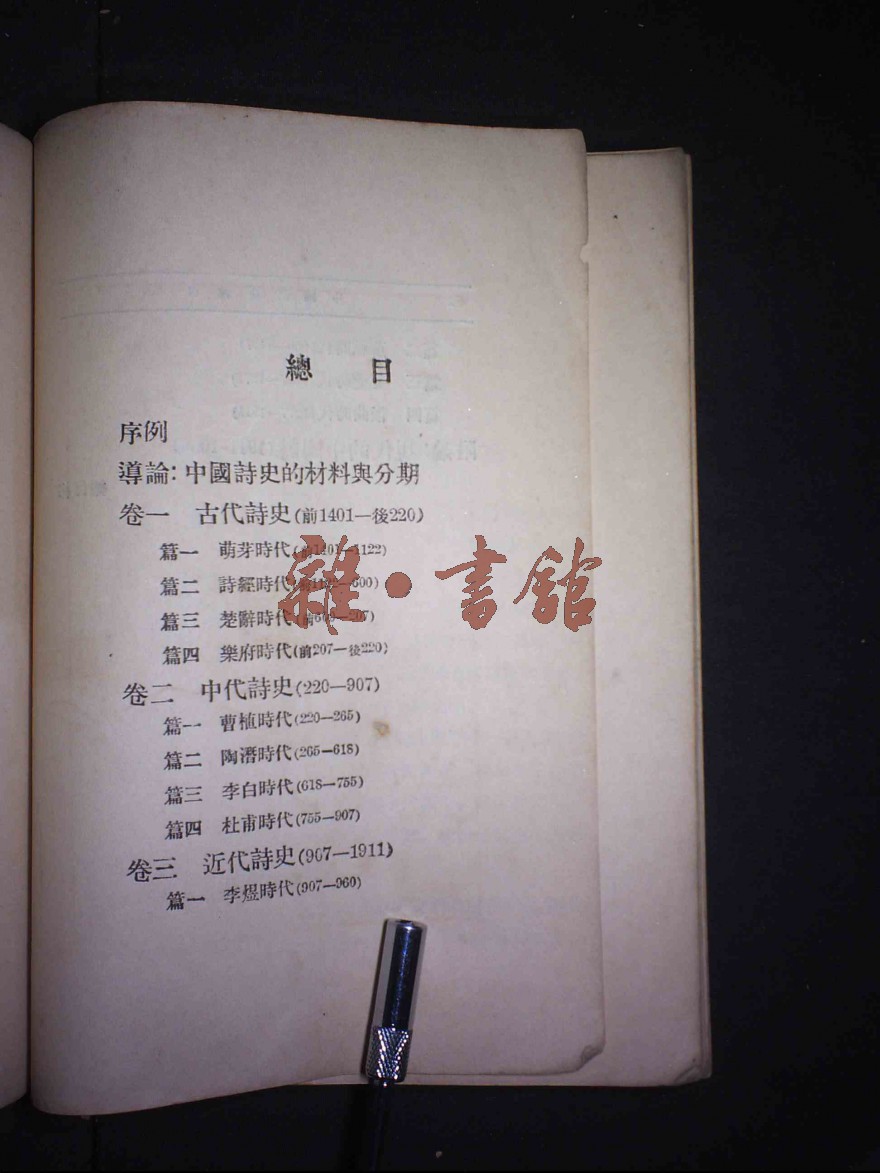 總 目
序例
導論：中國詩史的材料與分期
卷一 古代詩史(前1401—後220)
篇一 萌芽時代(前1401—1122)
篇二 詩經時代(前1122—600)
篇三 楚辭時代(前600—207)
篇四 樂府時代(前207—後220)
卷二 中代詩史(220—907)
篇一 曹植時代(220—265)
篇二 陶潛時代(265—618)
篇三 李白時代(618—755)
篇四 杜甫時代(755—907)
卷三 近代詩史(907—1911)
篇一 李煜時代(907—960)
雜·書館